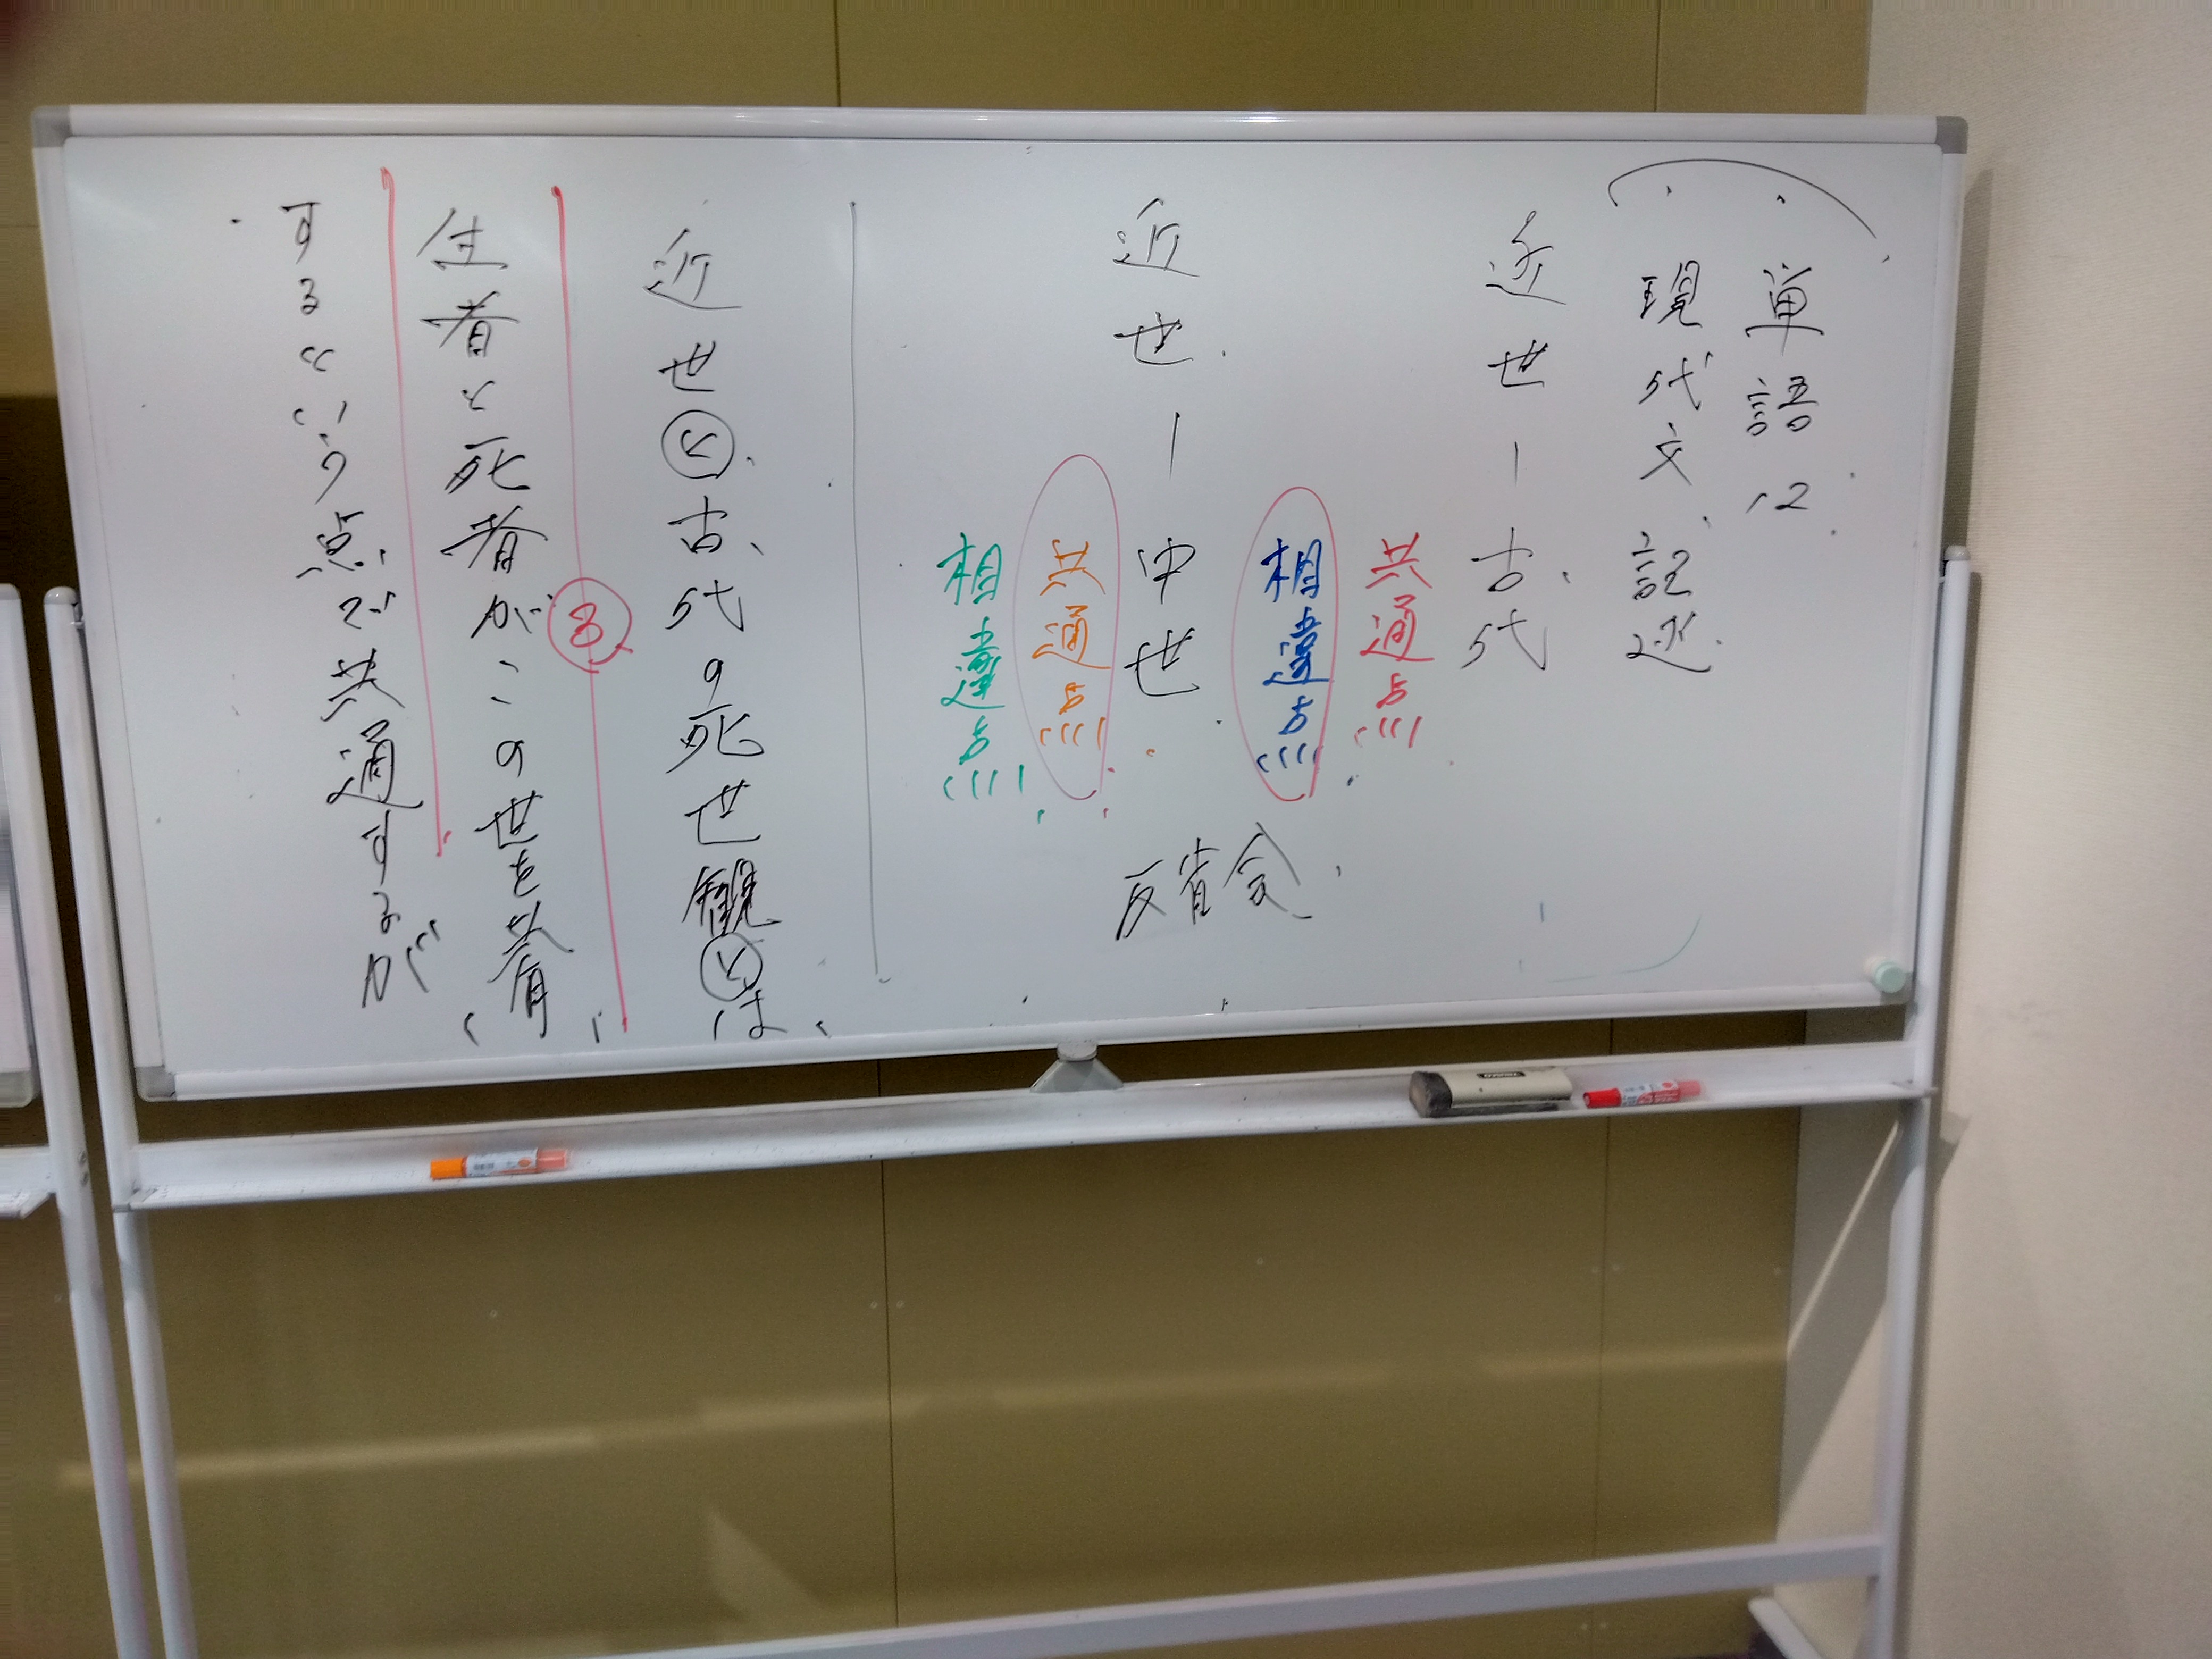 単語12
現代文記述
近世ー古代
共通点
相違点
近世ー中世
共通点
相違点
反省会
近世と古代の死世観とは、
3
生者と死者がこの世を共有
するという点で共通するが